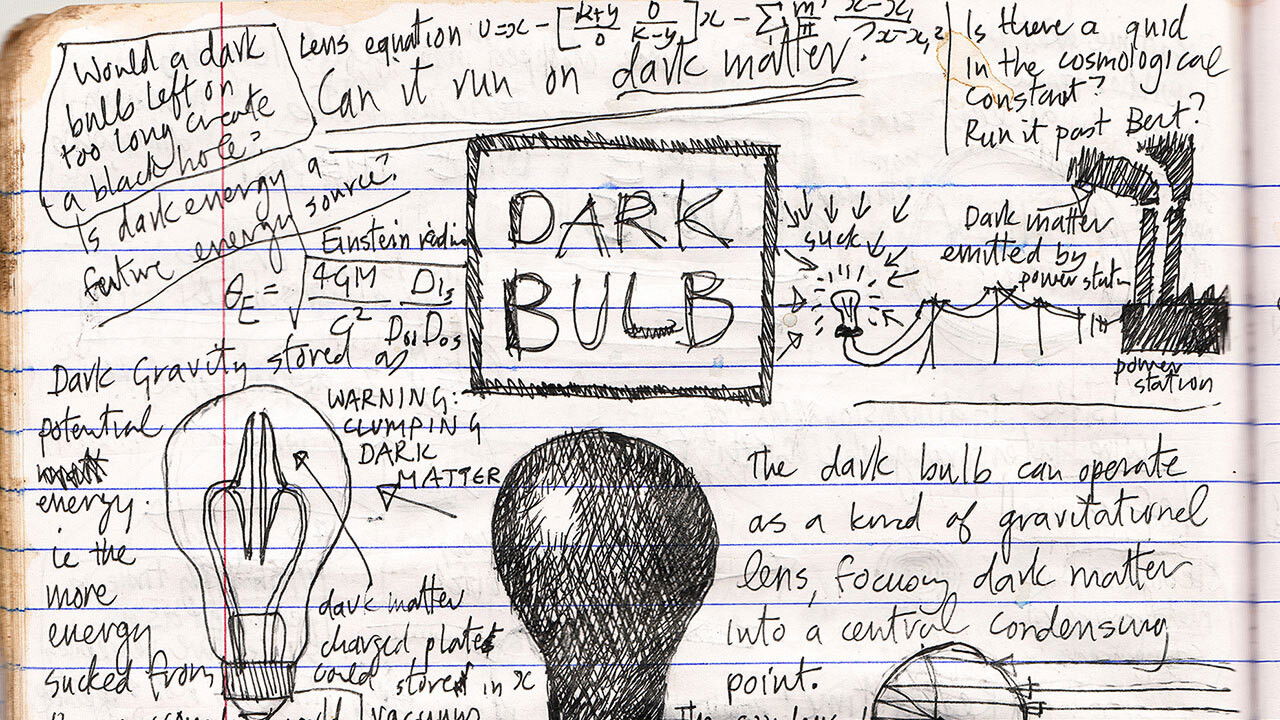 Would a dark
bulb left on
too long create
a black hole?
Lens equation
Can it run on dark matter?
Is there a quid
in the cosmological
constant?
Run it past Bert?
Is dark energy a
future energy source?
Einstein radius
θE = √ 4GM/C² Dls/
DARK
BULB
suck
Dark matter
emitted by
power station
power
station
Dark Gravity stored as
potential
energy.
ie the
more
energy
sucked from
WARNING:
CLUMPING
DARK
MATTER
dark matter
charged plates
could stored in x
vacuum
The dark bulb can operate
as a kind of gravitational
lens, focusing dark matter
into a central condensing
point.